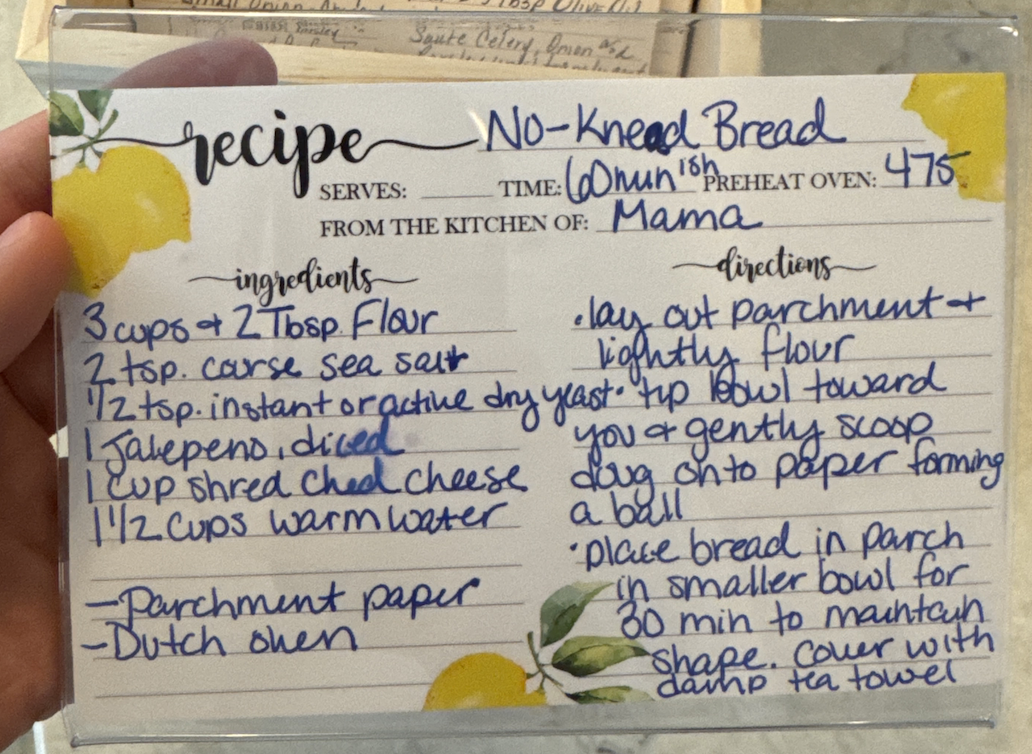 Tbsp Olive Oil
Saute Celery, Onion and
recipe No-Knead Bread
SERVES: TIME: 60min ish PREHEAT OVEN: 475
FROM THE KITCHEN OF: Mama
ingredients
3 cups + 2 Tbsp. Flour
2 tsp. course sea salt
1/2 tsp. instant or active dry yeast
1 Jalepeno, diced
1 cup shred ched cheese
1 1/2 cups warm water
-Parchment paper
-Dutch oven
directions
• lay out parchment +
lightly flour
• tip bowl toward
you + gently scoop
doug onto paper forming
a ball
• place bread in parch
in smaller bowl for
30 min to maintain
shape. Cover with
damp tea towel